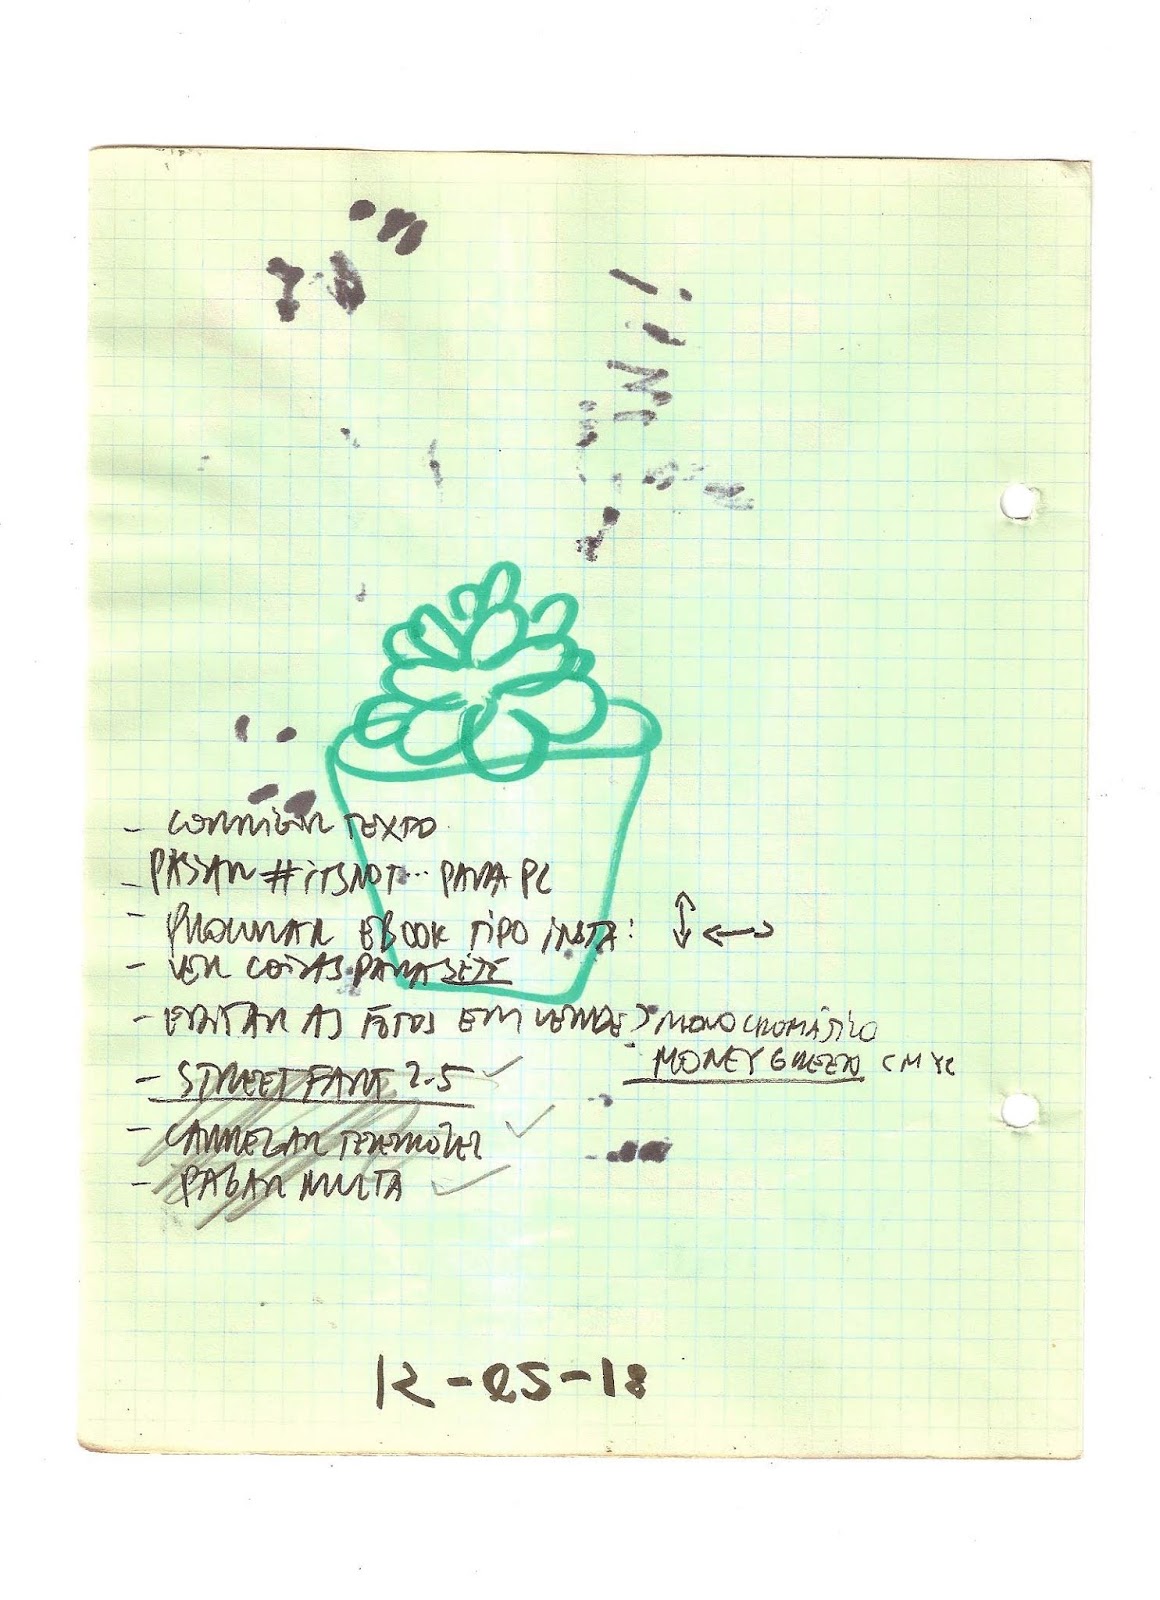 - CORRIGIR TEXTO
- PASSAR #ITSNOT... PARA PC
- PROCURAR EBOOK TIPO INSTA!
- VER COISAS PARA SETE
- EDITAR AS FOTOS EM VERDE > MONOCROMÁTICO
- MONEY GREEN CMYK
- STREET FART 2.5
- CARREGAR TELEMOVEL
- PAGAR MULTA
12-05-18